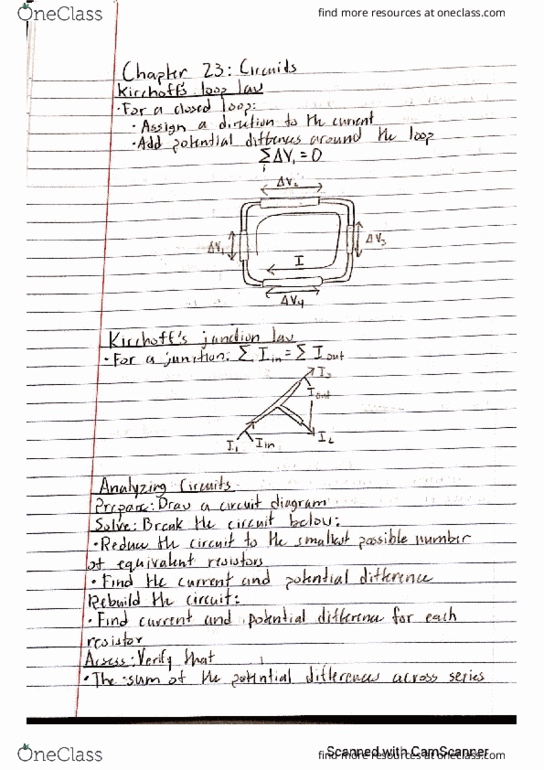 OneClass
find more resources at oneclass.com
Chapter 23: Circuids
Kirchoff's loop law
·For a closed loop:
· Assign a direction to the current
·Add potential differences around the loop
∑ΔVᵢ = 0
i
ΔV₂
ΔV₁
ΔV₃
I
ΔV₄
Kirchoff's junction law
·For a junction: ∑ I in = ∑ I out
I₃
I out
I₁ I in
I₂
Analyzing Circuits
Prepare: Draw a circuit diagram
Solve: Break the circuit below:
·Reduce the circuit to the smallest possible number
of equivalent resistors
·Find the current and potential difference
Rebuild the circuit:
·Find current and potential difference for each
resistor
Assess: Verify that
·The sum of the potential differences across series
OneClass
find more resources at oneclass.com
Scanned with CamScanner